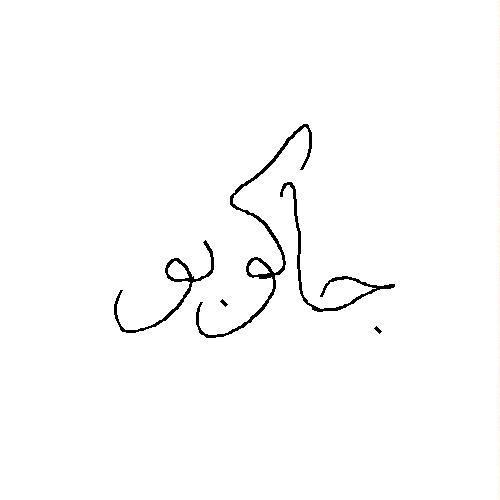 جاكوبو